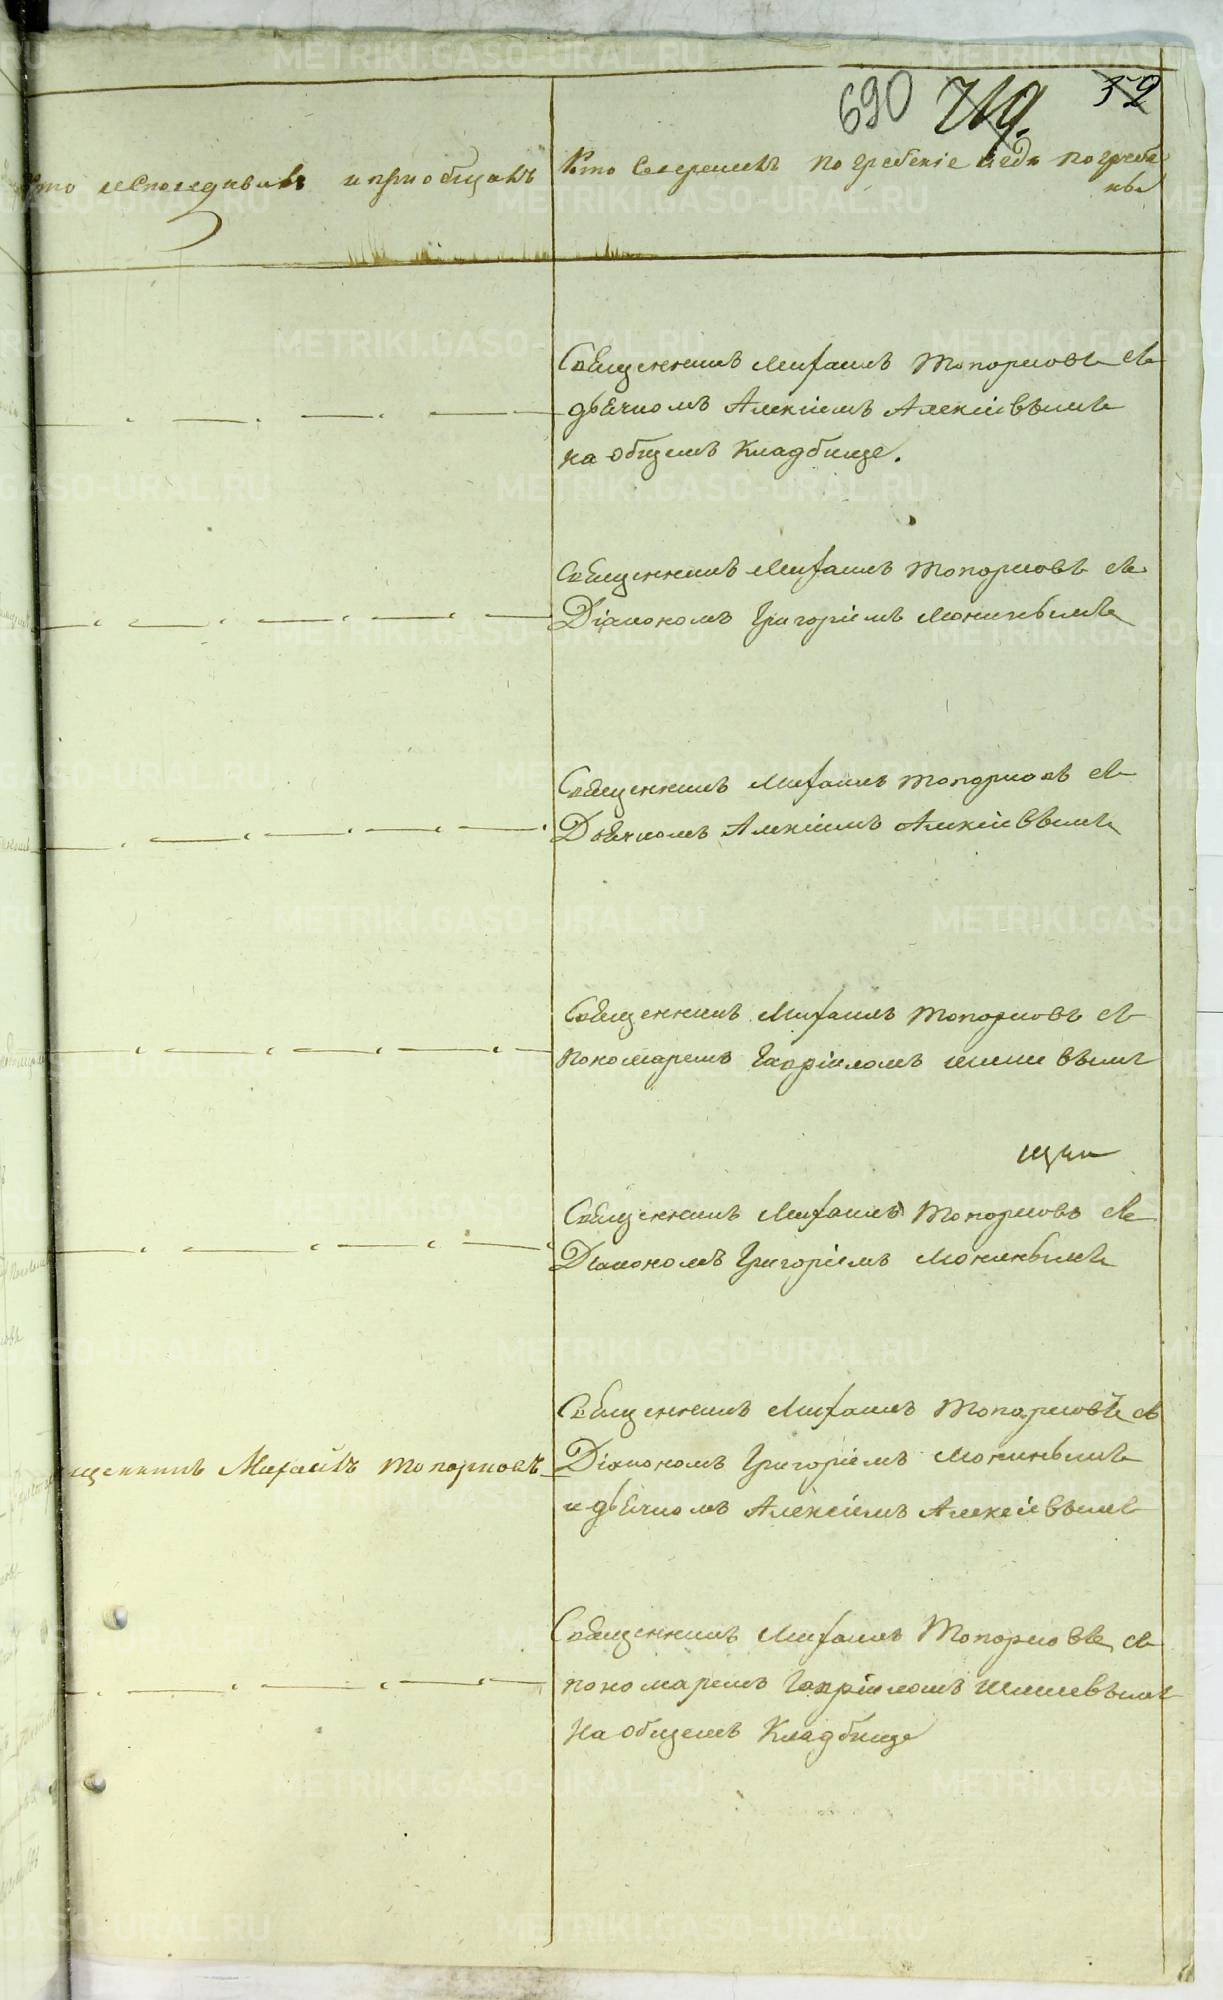 690 719. 52
Кто исповедывалъ и приобщалъ
Кто Совершилъ погребение и гдѣ погребе
ны
Священникъ Михаилъ Топорковъ съ
дьячкомъ Алексіемъ Алексіевымъ
на общемъ Кладбище.
Священникъ Михаилъ Топорковъ съ
Діакономъ Григоріемъ
Священникъ Михаилъ Топорковъ съ
Дьячкомъ Алексіемъ Алексіевымъ
Священникъ Михаилъ Топорковъ съ
пономаремъ Гавріиломъ
Священникъ Михаилъ Топорковъ съ
Діакономъ Григоріемъ
щенникъ Михаилъ Топорковъ
Священникъ Михаилъ Топорковъ съ
Діакономъ Григоріемъ
и дьячкомъ Алексіемъ Алексіевымъ
Священникъ Михаилъ Топорковъ съ
пономаремъ Гавріиломъ
На общемъ Кладбище
METRIKI.GASO-URAL.RU